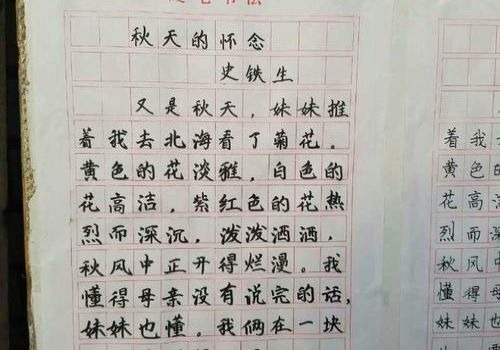 秋天的怀念
史铁生
又是秋天，妹妹推
着我去北海看了菊花。
黄色的花淡雅，白色的
花高洁，紫红色的花热
烈而深沉，泼泼洒洒，
秋风中正开得烂漫。我
懂得母亲没有说完的话，
妹妹也懂。我俩在一块
着我去
黄色的
花高洁
烈而深
秋风中
懂得母
妹妹也